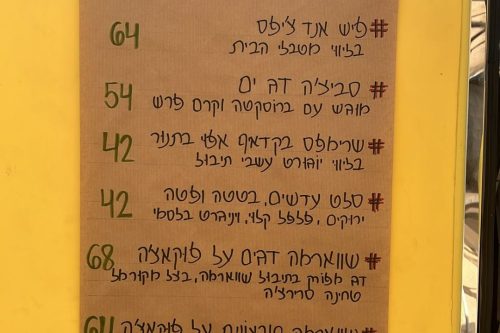 # פיש אנד צ'יפס 64
בליווי מטבלי הבית
# סביצ'ה דג ים 54
מוגש עם ברוסקטה וקרם פרש
# שרימפס בקדאיף אפוי בתנור 42
בליווי יוגורט עשבי תיבול
# סלט עדשים, בטטה ופטה 42
ירוקים, פלפל קלוי, ויניגרט בלסמי
# שווארמה דגים על פוקאצ'ה 68
דג בתיבול שווארמה, בצל
טחינה סרירצ'ה
שווארמה על פוקאצ'ה 64